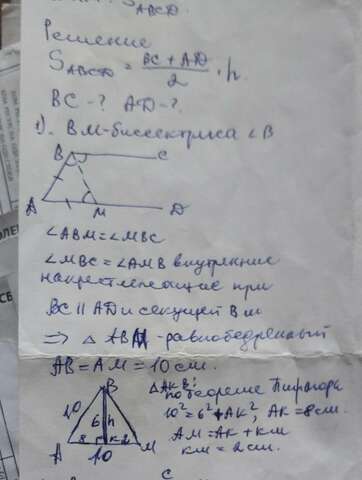 S ABCD
Решение
S ABCD = (BC + AD)/2 · h
BC - ? AD - ?
1). BM - биссектриса ∠B
B C
A M D
∠ABM = ∠MBC
∠MBC = ∠AMB внутренние
накрестлежащие при
BC || AD и секущей BM
⇒ △ ABM - равнобедренный
AB = AM = 10 см.
B △AKB:
по теореме Пифагора
10 6 h 10² = 6² + AK², AK = 8 см.
A 8 K 2 M AM = AK + KM
10 KM = 2 см.
C